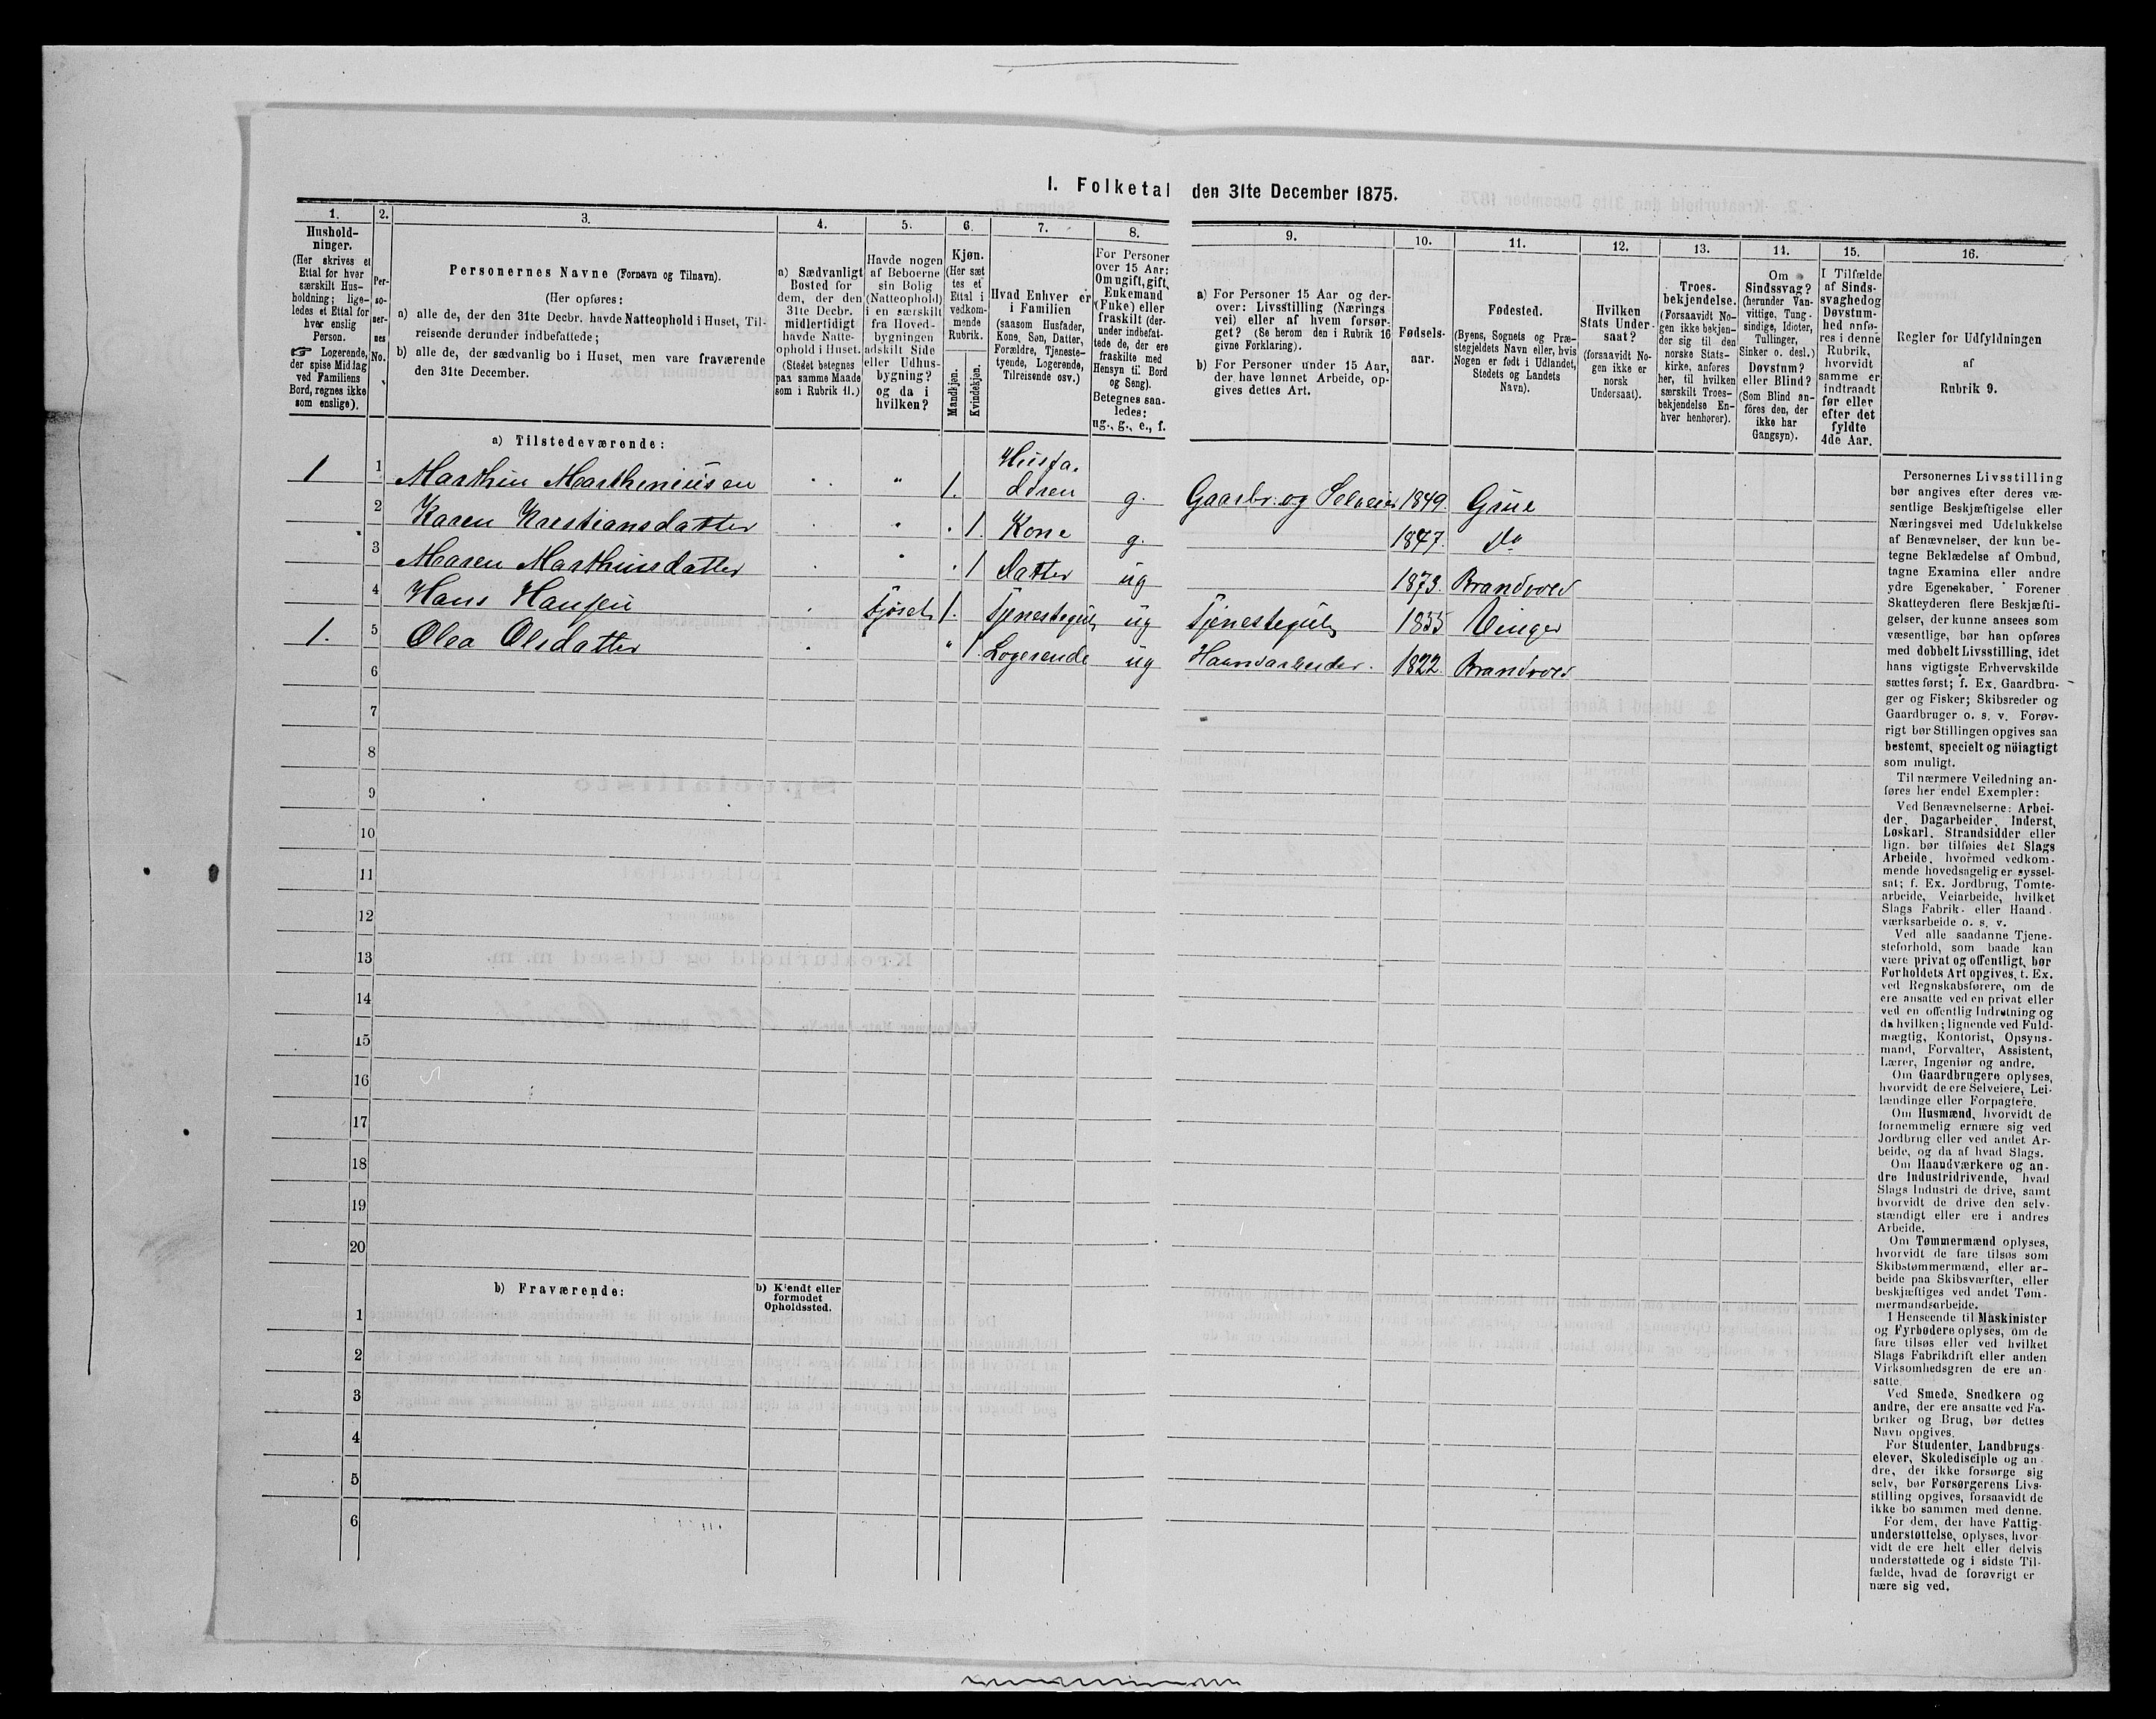 I. Folketal den 31te December 1875.
1.
Hushold-
ninger.
(Her skrives et
Ettal for hver
særskilt Hus-
holdning; lige-
ledes et Ettal for
hver enslig
Person.
☞ Logerende,
der spise Middag
ved Familiens
Bord, regnes ikke
som enslige).
2.
Per-
so-
ner-
nes
No.
3.
Personernes Navne (Fornavn og Tilnavn).
(Her opføres:
a) alle de, der den 31te Decbr. havde Natteophold i Huset, Til-
reisende derunder indbefattede;
b) alle de, der sædvanlig bo i Huset, men vare fraværende
den 31te December.
4.
a) Sædvanligt
Bosted for
dem, der den
31te Decbr.
midlertidigt
havde Natte-
ophold i Huset.
(Stedet betegnes
paa samme Maade
som i Rubrik 11.)
5.
Havde nogen
af Beboerne
sin Bolig
(Natteophold)
i en særskilt
fra Hoved-
bygningen
adskilt Side
eller Udhus-
bygning?
og da i
hvilken?
6.
Kjøn.
(Her sæt
tes et
Ettal i
vedkom-
mende
Rubrik.
Mandkjøn.
Kvindekjøn.
7.
Hvad Enhver er
i Familien
(saasom Husfader,
Kone, Søn, Datter,
Forældre, Tjeneste-
tyende, Logerende,
Tilreisende osv.)
8.
For Personer
over 15 Aar:
Om ugift, gift,
Enkemand
(Enke) eller
fraskilt (der-
under indbefat-
tede de, der ere
fraskilte med
Hensyn til Bord
og Seng).
Betegnes saa-
ledes:
ug., g., e., f.
9.
a) For Personer 15 Aar og der-
over: Livsstilling (Nærings
vei) eller af hvem forsør-
get? (Se herom den i Rubrik 16
givne Forklaring).
b) For Personer under 15 Aar,
der have lønnet Arbeide, op-
gives dettes Art.
10.
Fødsels-
aar.
11.
Fødested.
(Byens, Sognets og Præ-
stegjeldets Navn eller, hvis
Nogen er født i Udlandet,
Stedets og Landets
Navn).
12.
Hvilken
Stats Under-
saat?
(forsaavidt No-
gen ikke er
norsk
Undersaat).
13.
Troes-
bekjendelse.
(Forsaavidt No-
gen ikke bekjen-
der sig til den
norske Stats-
kirke, anføres
her, til hvilken
særskilt Troes-
bekjendelse En-
hver henhører).
14.
Om
Sindssvag?
(herunder Van-
vittige, Tung-
sindige, Idioter,
Tullinger,
Sinker o. desl.)
Døvstum?
eller Blind?
(Som Blind an-
føres den, der
ikke har
Gangsyn).
15.
I Tilfælde
af Sinds-
svaghed og
Døvstum-
hed anfø-
res i denne
Rubrik,
hvorvidt
samme er
indtraadt
før eller
efter det
fyldte
4de Aar.
16.
Regler for Udfyldningen
af
Rubrik 9.
a) Tilstedeværende:
1 1 Marthin Martheniusen " 1. Husfaderen g. Gaardbr. og Selveier 1849. Grue
2 Karen Krestiansdatter " 1. Kone g. 1847. do
3 Maren Marthinsdatter " 1 Datter ug 1873. Brandvold
4 Hans Hansen Fjøset 1. Tjenestegut ug Tjenestegut 1855 Vinger
1. 5 Olea Olsdatter " 1. Logerende ug Haandarbeider. 1822. Brandvold
6
7
8
9
10
11
12
13
14
15
16
17
18
19
20
b) Fraværende:
b) Kjendt eller
formodet
Opholdssted.
1
2
3
4
5
6
Personernes Livsstilling
bør angives efter deres væ-
sentlige Beskjæftigelse eller
Næringsvei med Udelukkelse
af Benævnelser, der kun be-
tegne Beklædelse af Ombud,
tagne Examina eller andre
ydre Egenskaber. Forener
Skatteyderen flere Beskjæfti-
gelser, der kunne ansees som
væsentlige, bør han opføres
med dobbelt Livsstilling, idet
hans vigtigste Erhvervskilde
sættes først; f. Ex. Gaardbru-
ger og Fisker; Skibsreder og
Gaardbruger o. s. v. Forøv-
rigt bør Stillingen opgives saa
bestemt, specielt og nöiagtigt
som muligt.
Til nærmere Veiledning an-
føres her endel Exempler:
Ved Benævnelserne: Arbei-
der, Dagarbeider, Inderst,
Løskarl, Strandsidder eller
lign. bør tilføies det Slags
Arbeide, hvormed vedkom-
mende hovedsagelig er syssel-
sat; f. Ex. Jordbrug, Tomte-
arbeide, Veiarbeide, hvilket
Slags Fabrik- eller Haand-
værksarbeide o. s. v.
Ved alle saadanne Tjene-
steforhold, som baade kan
være privat og offentligt, bør
Forholdets Art opgives, f. Ex.
ved Regnskabsførere, om de
ere ansatte ved en privat eller
ved en offentlig Indretning og
da hvilken; lignende ved Fuld-
mægtig, Kontorist, Opsyns-
mand, Forvalter, Assistent,
Lærer, Ingeniør og andre.
Om Gaardbrugere oplyses,
hvorvidt de ere Selveiere, Lei-
lændinge eller Forpagtere.
Om Husmænd, hvorvidt de
fornemmelig ernære sig ved
Jordbrug eller ved andet Ar-
beide, og da af hvad Slags.
Om Haandværkere og an-
dre Industridrivende, hvad
Slags Industri de drive, samt
hvorvidt de drive den selv-
stændigt eller ere i andres
Arbeide.
Om Tømmermænd oplyses,
hvorvidt de fare tilsøs som
Skibstømmermænd, eller ar-
beide paa Skibsværfter, eller
beskjæftiges ved andet Tøm-
mermandsarbeide.
I Henseende til Maskinister
og Fyrbødere oplyses, om de
fare tilsøs eller ved hvilket
Slags Fabrikdrift eller anden
Virksomhedsgren de ere an-
satte.
Ved Smede, Snedkere og
andre, der ere ansatte ved Fa-
briker og Brug, bør dettes
Navn opgives.
For Studenter, Landbrugs-
elever, Skoledisciple og an-
dre, der ikke forsørge sig
selv, bør Forsørgerens Livs-
stilling opgives, forsaavidt de
ikke bo sammen med denne.
For dem, der have Fattig-
understøttelse, oplyses, hvor-
vidt de ere helt eller delvis
understøttede og i sidste Til-
fælde, hvad de forøvrigt er
nære sig ved.